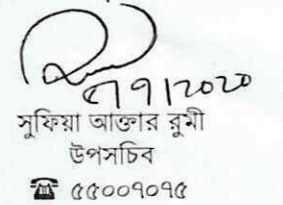 ৫/৭/২০২০
সুফিয়া আক্তার রুমী
উপসচিব
☎ ৫৫০০৭০৭৫